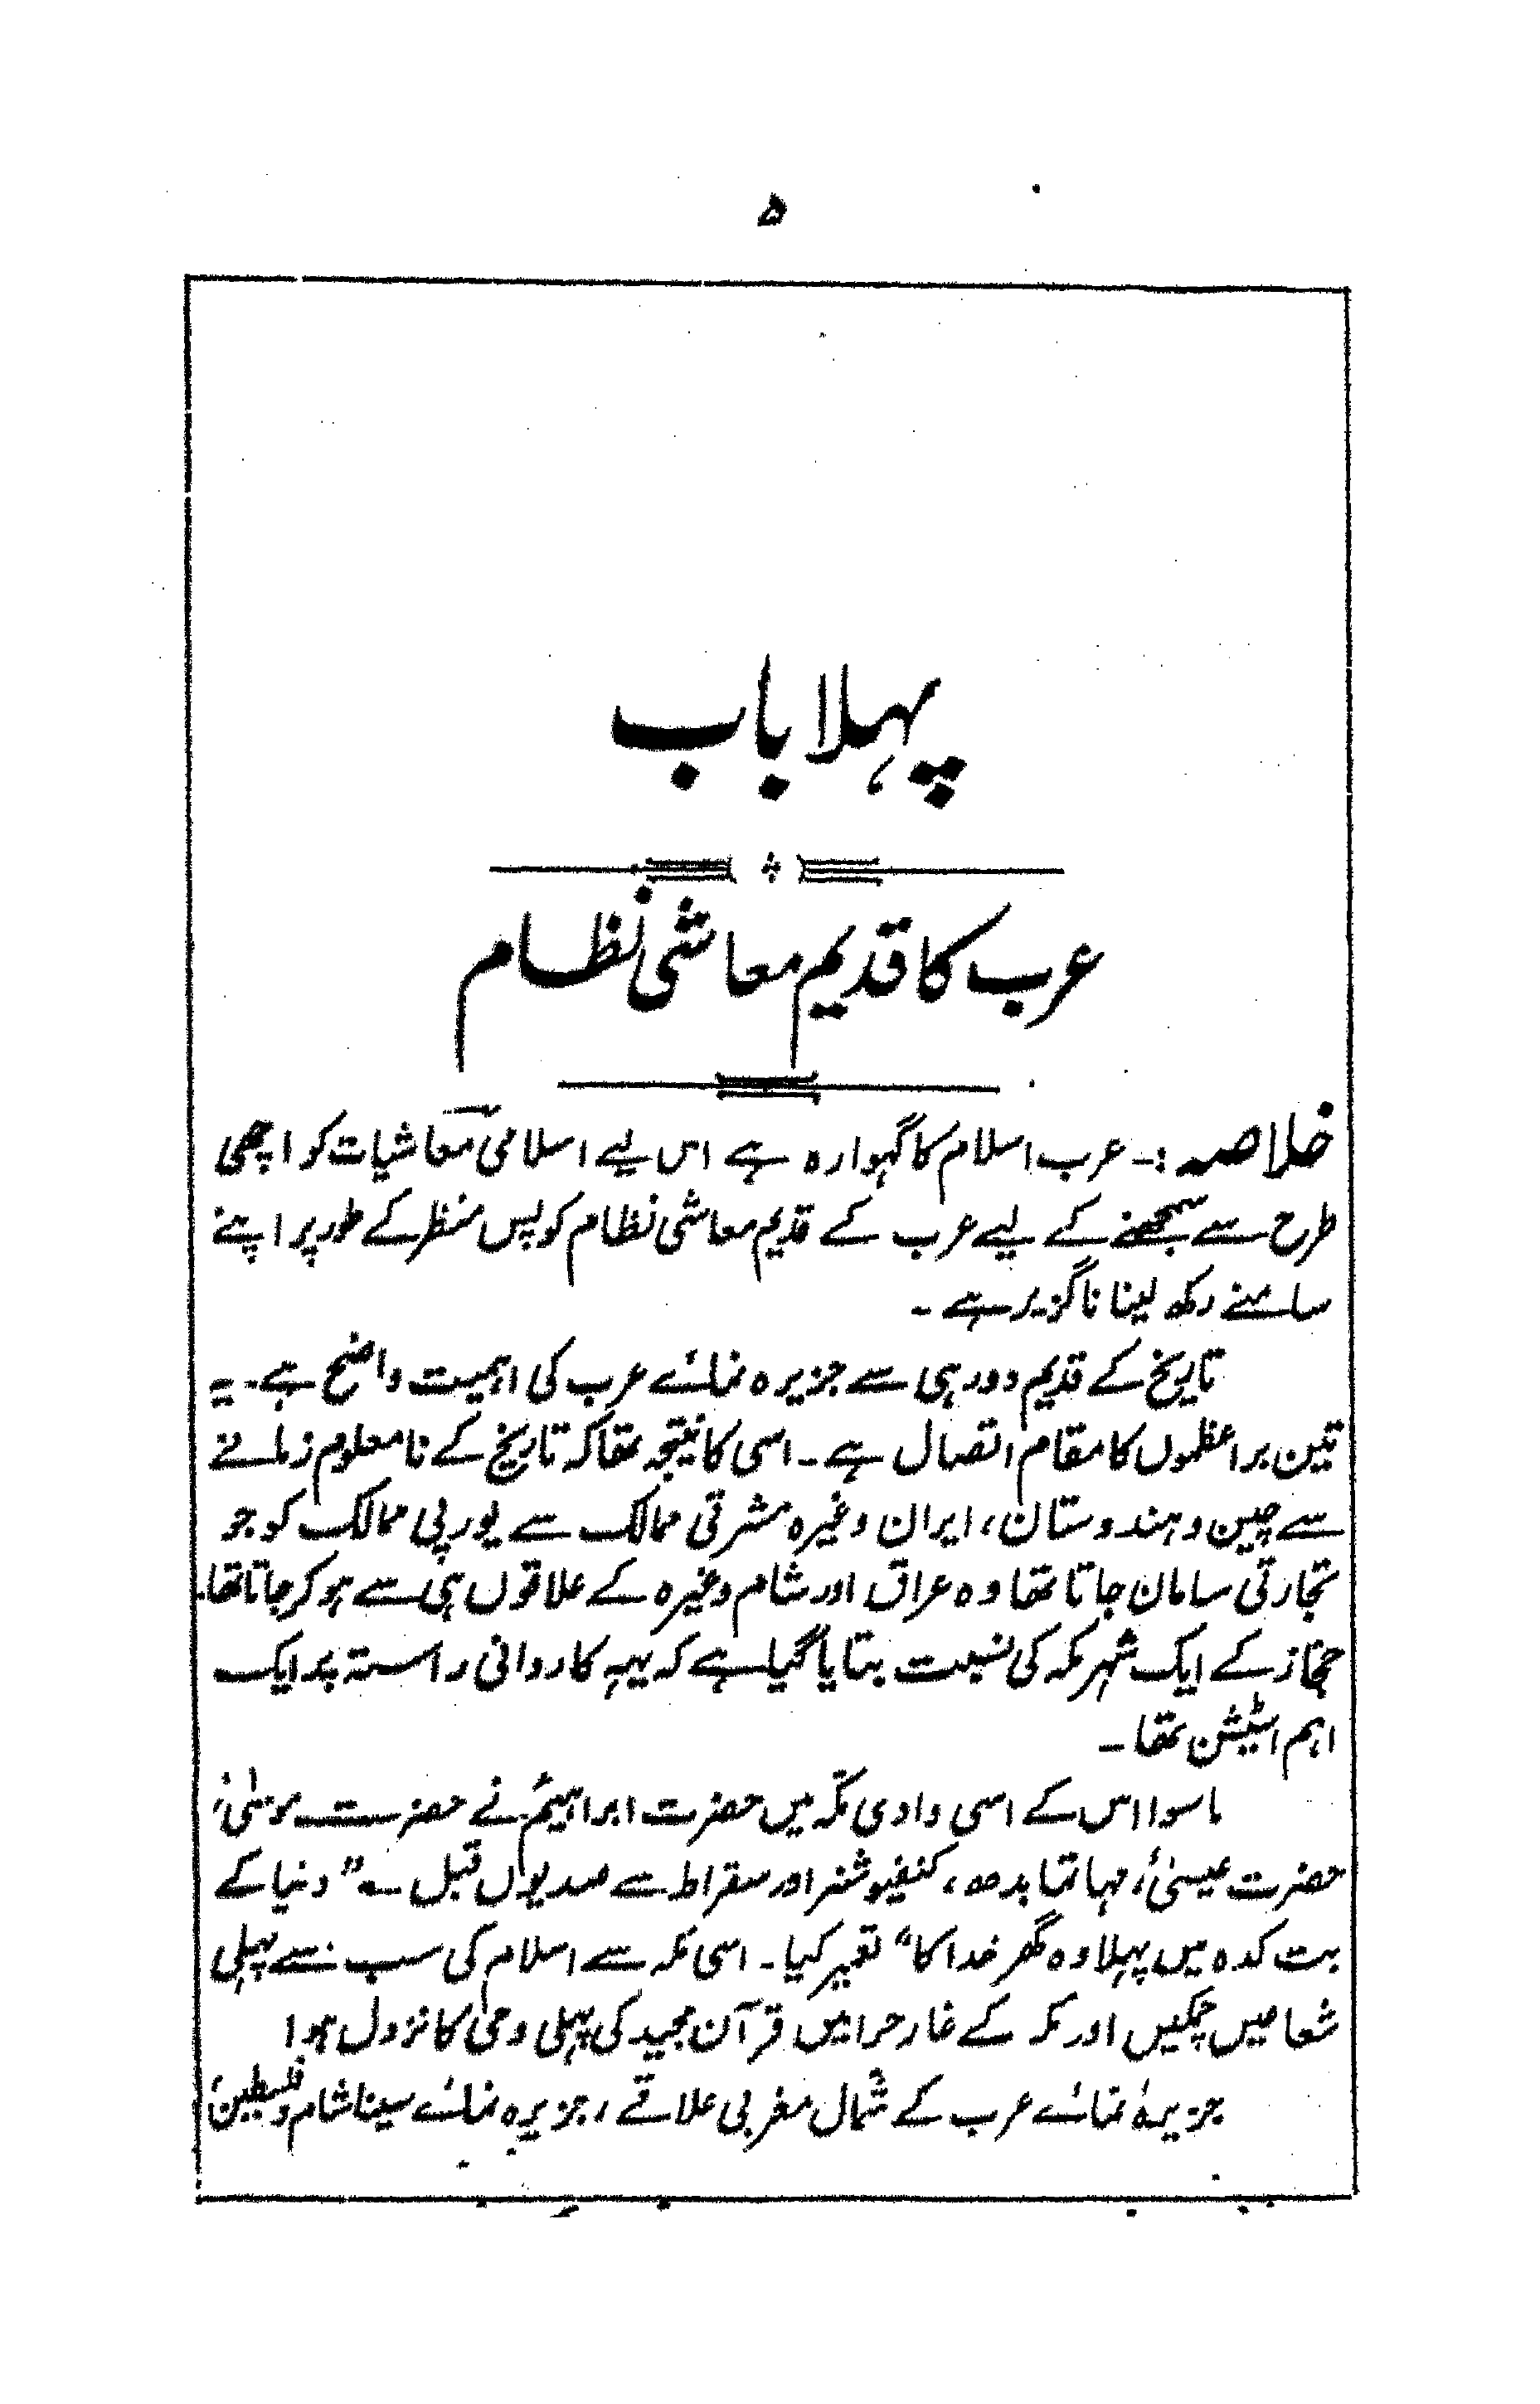 ۵
پہلا باب
عرب کا قدیم معاشی نظام
خلاصہ :۔ عرب اسلام کا گہوارہ ہے اس لیے اسلامی معاشیات کو اچھی
طرح سے سمجھنے کے لیے عرب کے قدیم معاشی نظام کو پس منظر کے طور پر اپنے
سامنے رکھ لینا ناگزیر ہے ۔
تاریخ کے قدیم دور ہی سے جزیرہ نمائے عرب کی اہمیت واضح ہے۔ یہ
تین براعظموں کا مقام اتصال ہے ۔ اسی کا نتیجہ تھا کہ تاریخ کے نا معلوم زمانے
سے چین و ہندوستان ، ایران وغیرہ مشرقی ممالک سے یورپی ممالک کو جو
تجارتی سامان جاتا تھا وہ عراق اور شام وغیرہ کے علاقوں ہی سے ہو کر جاتا تھا۔
حجاز کے ایک شہر مکہ کی نسبت بتایا گیا ہے کہ یہہ کاروانی راستہ پر ایک
اہم اسٹیشن تھا ۔
ماسوا اس کے اسی وادی مکّہ میں حضرت ابراہیمؑ نے حضرت موسیٰؑ ،
حضرت عیسیٰؑ ، مہاتما بدھ ، کنفیوشنر اور سقراط سے صدیوں قبل ؎ ” دنیا کے
بت کدہ میں پہلا وہ گھر خدا کا “ تعمیر کیا ۔ اسی مکہ سے اسلام کی سب سے پہلی
شعاعیں چمکیں اور مکہ کے غار حرا میں قرآن مجید کی پہلی وحی کا نزول ہوا
جزیرۂ نمائے عرب کے شمال مغربی علاقے ، جزیرہ نمائے سینا شام و فلسطین